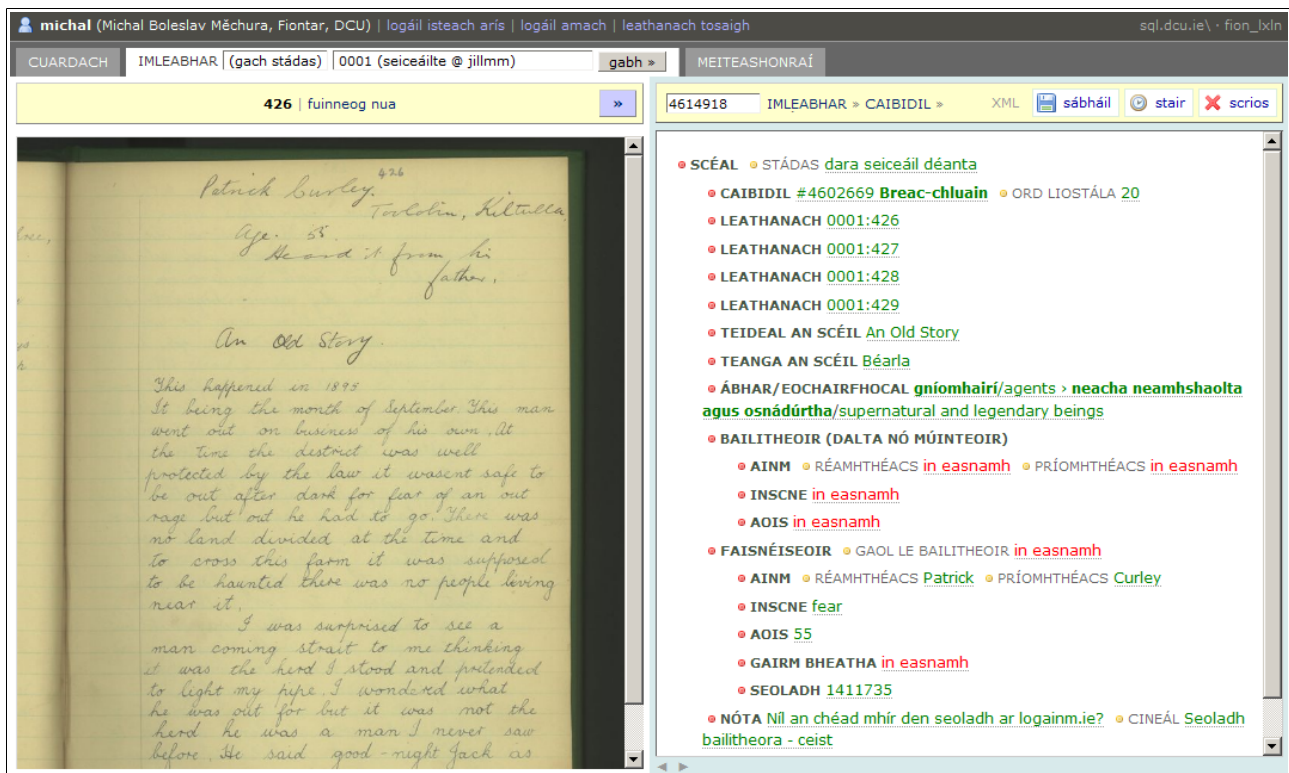 michal (Michal Boleslav Měchura, Fiontar, DCU) | logáil isteach arís | logáil amach | leathanach tosaigh
sql.dcu.ie\ · fion_lxln
CUARDACH IMLEABHAR (gach stádas) 0001 (seiceáilte @ jillmm) gabh » MEITEASHONRAÍ
426 | fuinneog nua »
426
Patrick Curley
Kiltulla
Age. 55.
Heard it from his
father.
An Old Story.
This happened in 1895
It being the month of September. This man
went out on business of his own. At
the time the destrict was well
protected by the law it wasent safe to
be out after dark for fear of an out
rage but out he had to go. There was
no land divided at the time and
to cross this farm it was supposed
to be haunted there was no people living
near it.
I was surprised to see a
man coming strait to me thinking
it was the herd I stood and pretended
to light my pipe. I wondered what
he was out for but it was not the
herd he was a man I never saw
before. He said good-night Jack as
4614918 IMLEABHAR » CAIBIDIL » XML sábháil stair scrios
SCÉAL STÁDAS dara seiceáil déanta
CAIBIDIL #4602669 Breac-chluain ORD LIOSTÁLA 20
LEATHANACH 0001:426
LEATHANACH 0001:427
LEATHANACH 0001:428
LEATHANACH 0001:429
TEIDEAL AN SCÉIL An Old Story
TEANGA AN SCÉIL Béarla
ÁBHAR/EOCHAIRFHOCAL gníomhairí/agents › neacha neamhshaolta
agus osnádúrtha/supernatural and legendary beings
BAILITHEOIR (DALTA NÓ MÚINTEOIR)
AINM RÉAMHTHÉACS in easnamh PRÍOMHTHÉACS in easnamh
INSCNE in easnamh
AOIS in easnamh
FAISNÉISEOIR GAOL LE BAILITHEOIR in easnamh
AINM RÉAMHTHÉACS Patrick PRÍOMHTHÉACS Curley
INSCNE fear
AOIS 55
GAIRM BHEATHA in easnamh
SEOLADH 1411735
NÓTA Níl an chéad mhír den seoladh ar logainm.ie? CINEÁL Seoladh
bailitheora - ceist